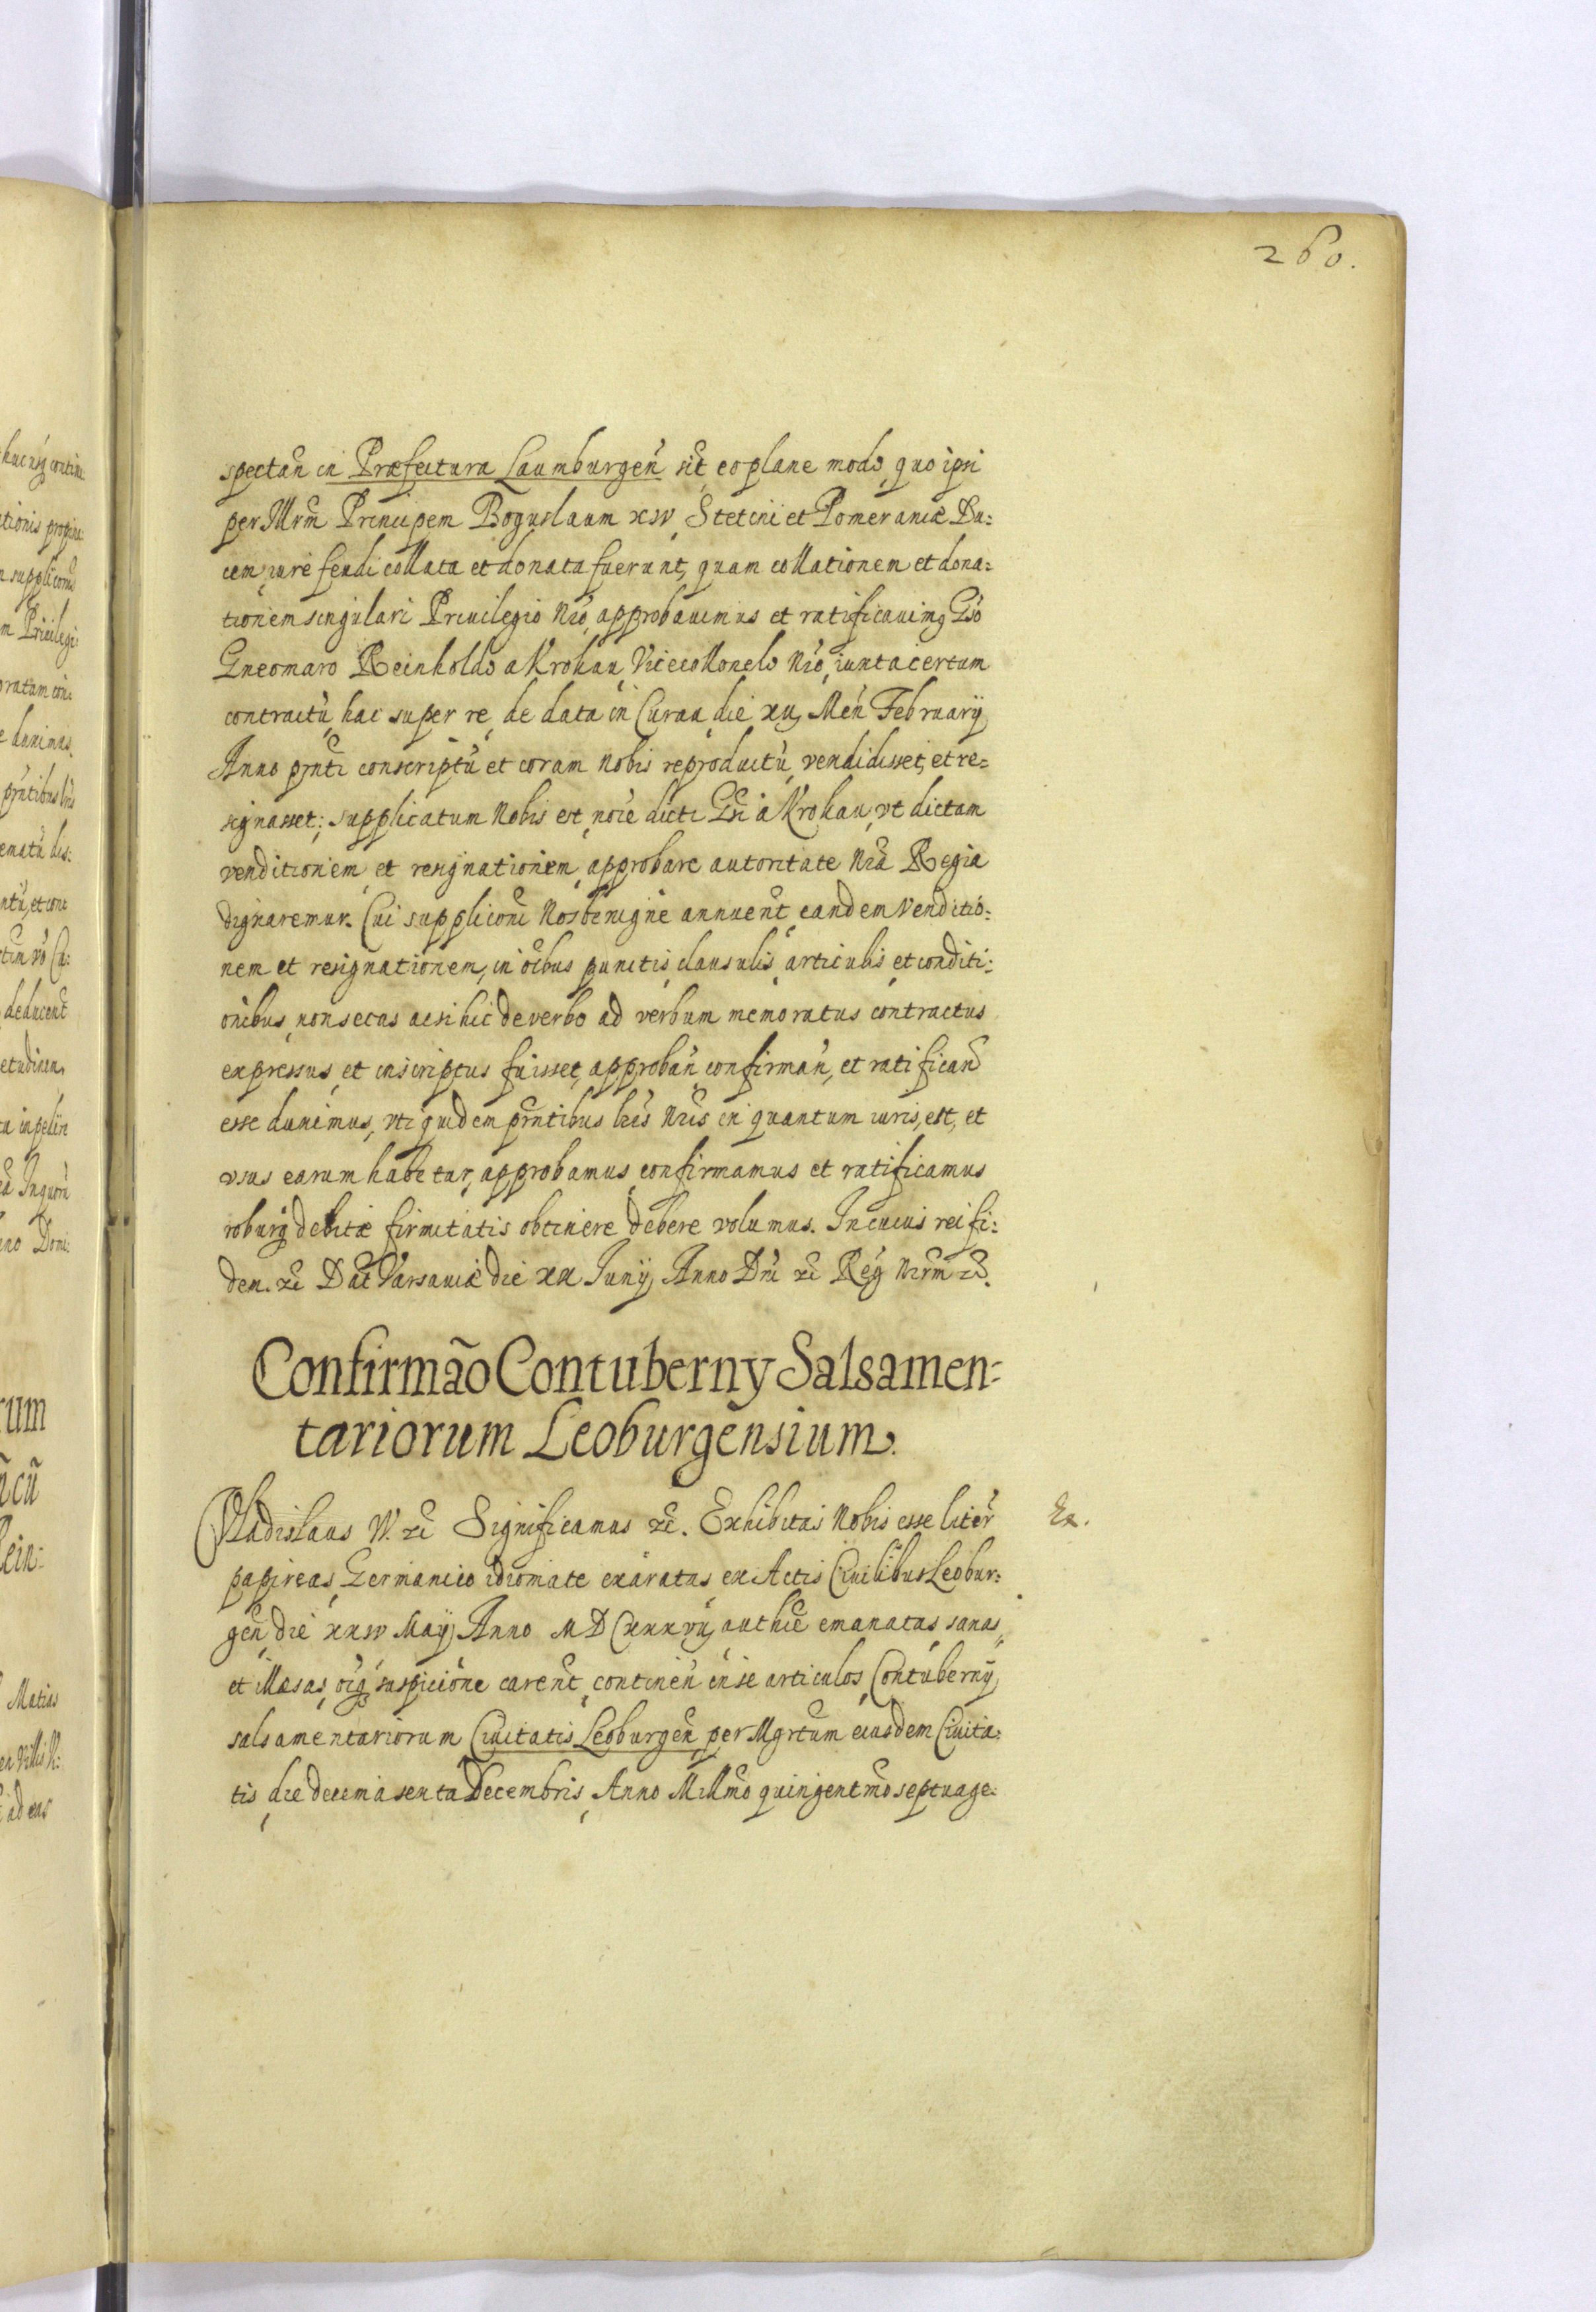 260.
spectan̄ in Præfectura Laumburgen̄ sit̄ eo plane modo, quo ipsi
per Illrm̄ Principem Boguslaum XIV, Stetini et Pomeraniæ Du:
cem, iure feudi collata et donata fuerunt, quam collationem et dona:
tionem singulari Priuilegio Nr̄o approbauimus et ratificauimq Gs̄o
Gneomaro Reinholdo a Krokau, Vicecollonelo Nr̄o, iuxta certum
contractū hac super re, de data in Curau die XII Men̄ February
Anno pn̄ti conscriptū et coram Nobis reproductū vendidisset, et re=
signasset; supplicatum Nobis est noīe dicti Gs̄i a Krokau, vt dictam
venditionem et resignationem approbare autoritate Nr̄a Regia
dignaremur. Cui supplicōni Nos benigne annuen̄t eandem venditio:
nem et resignationem, in oībus punctis, clausulis, articulis, et conditi:
onibus, non secus ac si hic de verbo ad verbum memoratus contractus
expressus, et inscriptus fuisset, approban̄, confirman̄, et ratifican̄
esse duximus, vti quidem pn̄tibus lr̄is Nr̄is in quantum iuris est, et
vsus earum habetur, approbamus, confirmamus et ratificamus
roburq debitæ firmitatis obtinere debere volumus. In cuius rei fi:
dem. ec̄ Dat̄ Varsauiæ die XX Iunÿ, Anno Dn̄i ec̄ Reḡ Nr̄rm̄ ec̄.
Confirmāo Contuberny Salsamen=
tariorum Leoburgensium.
Vladislaus IV. ec̄ Significamus ec̄. Exhibitas Nobis esse liter̄
Ex.
papireas, Germanico idiomate exaratas, ex Actis Ciuilibus Leobur:
gen̄ die XXIV May Anno MDCXXXVII, authc̄e emanatas, sanas,
et illæsas, oīq suspicione caren̄t, continen̄ in se articulos Contubernÿ
salsamentariorum Ciuitatis Leoburgen̄ per Mgrtum eiusdem Ciuita:
tis die decima sexta Decembris, Anno Millm̄o quingentm̄o septuage: